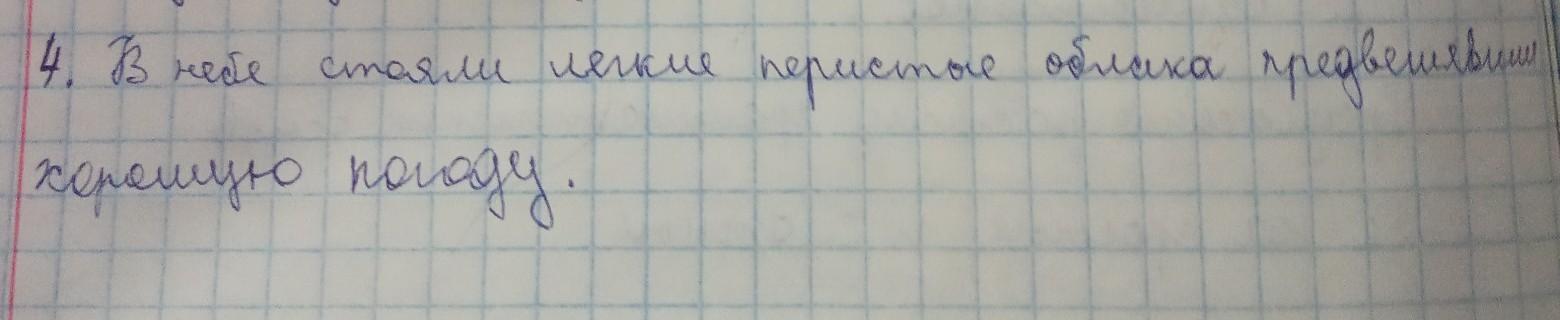 4. В небе стояли легкие перистые облака предвещявшии
хорошую погоду.